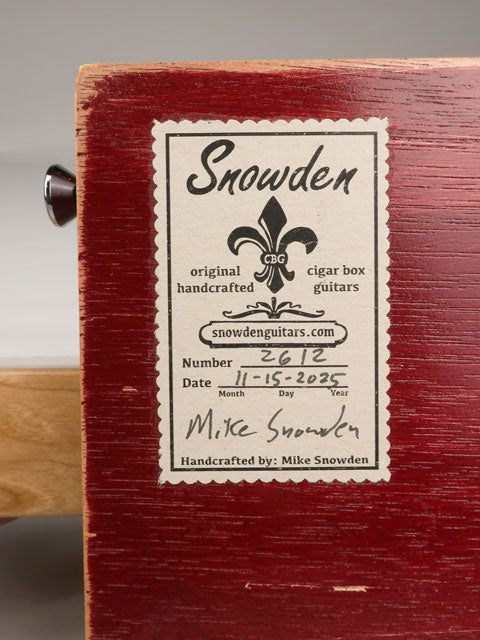 Snowden
CBG
original cigar box
handcrafted guitars
snowdenguitars.com
Number 2612
Date 11-15-2025
Month Day Year
Mike Snowden
Handcrafted by: Mike Snowden